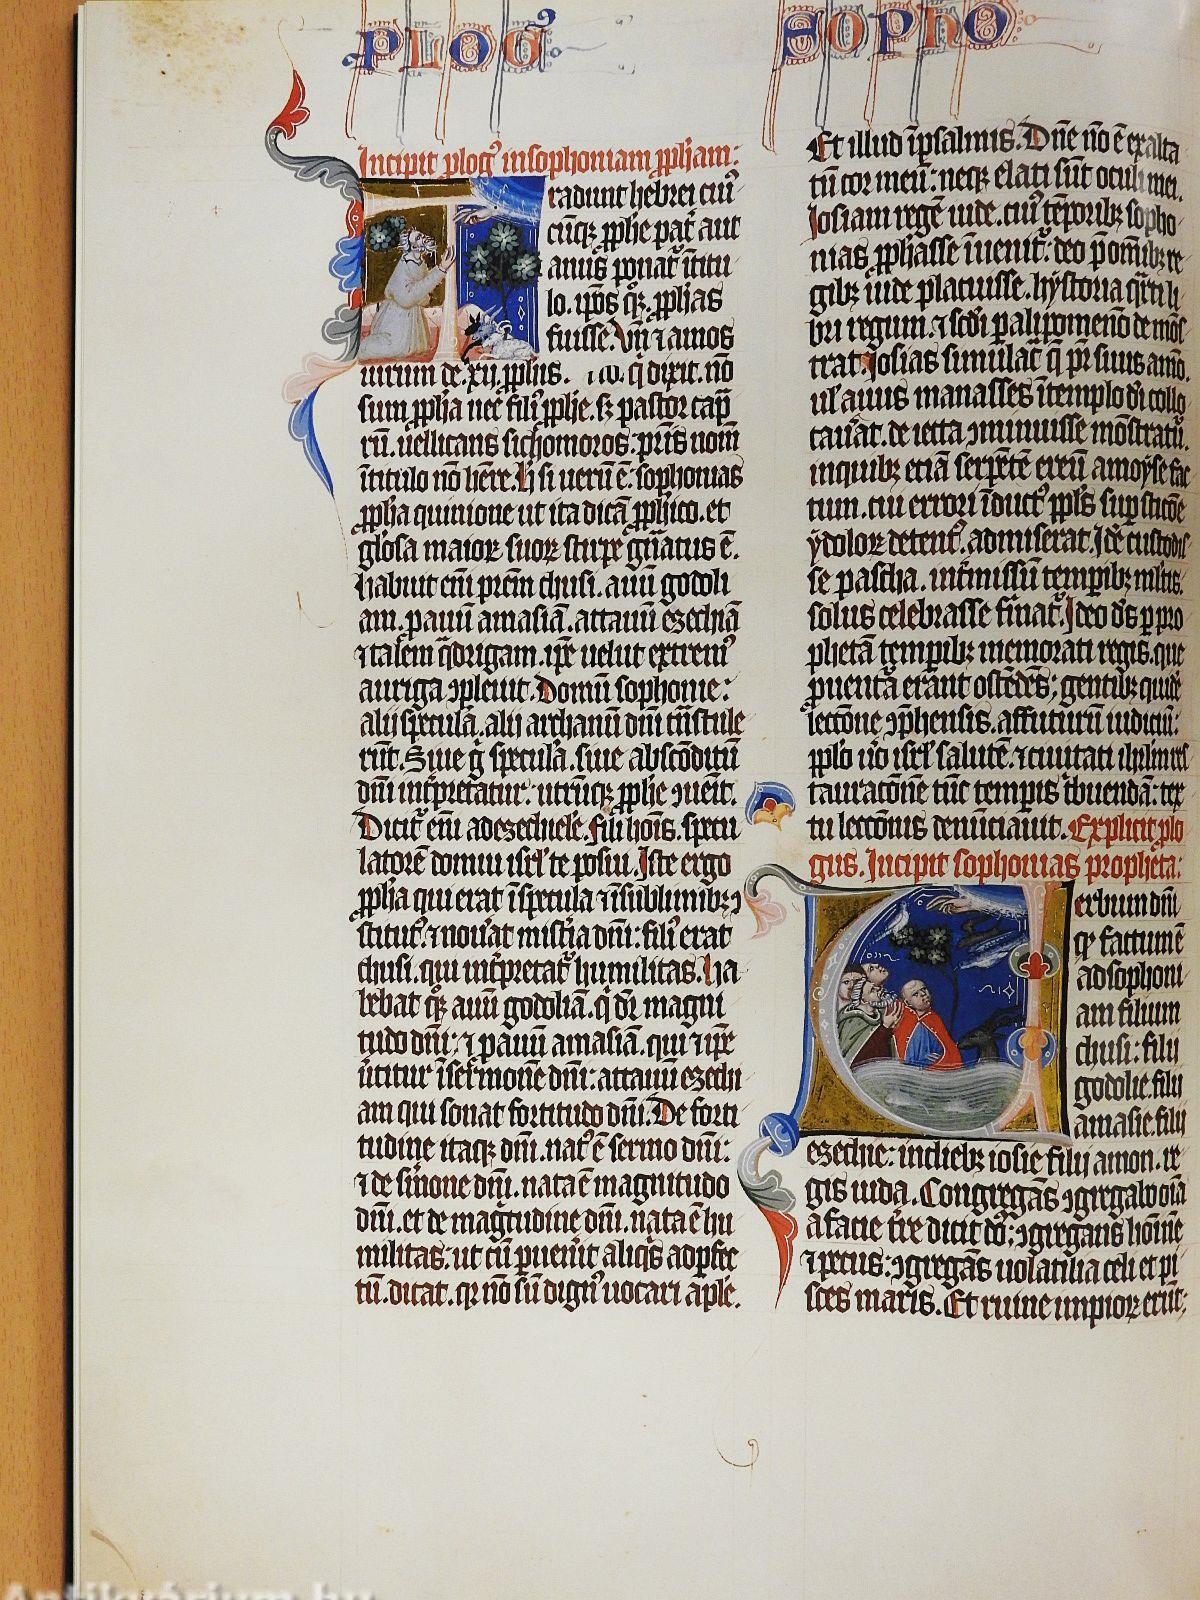 PLOG᾿ SOPHO
Incipit plog᾿ in sophoniam pph̄am:
radunt hebrei cui᾿
cūq; pph̄e pat᾿ aut
auus ponat᾿ ī titu
lo. ip̄os q̄z. pph̄as
fuisse. Vn̄ ⁊ amos
unum de .xij. pph̄is. q̄ dixit. nō
sum pph̄a nec fili᾿ pph̄e. sz pastor cap̄
rū. uellicans sichomoros: pr̄is nom̄
ī titulo nō hēre. h̄ si uerū ē: sophonias
pph̄a quinione ut ita dicā pph̄ico. et
glōsa maioꝝ suoꝝ stirpe gn̄atus ē.
habuit em̄ pr̄em chusi. auū godoli
am. pauū amasiā. attauū ezechiā
⁊ talem q̄drigam. ip̄e uelut extrem᾿
auriga ɔpleuit. Domū sophonie:
alij specula. alij archanū dn̄i tn̄stule
rūt. Siue g̊ specula. siue abscōditū
dn̄i int᾿pretatur: utrūq; pph̄e ɔuēit.
Dicit᾿ em̄ ad ezechiele. fili hoīs. specu
latorē domui isrl᾿ te posui. Iste ergo
pph̄a qui erat ī specula ⁊ ī sublimibz ɔ
stitut᾿ ⁊ nou᾿at mist᾿ia dn̄i: fili᾿ erat
chusi. qui int᾿pretat᾿ humilitas. Ha
bebat q̄z auū godoliā. q̄ dr̄ magni
tudo dn̄i: ⁊ pauū amasiā. qui ⁊ ip̄e
ūtitur ī sermone dn̄i: attauū ezechi
am qui sonat fortitudo dn̄i. De forti
tudine itaq; dn̄i. nat᾿ ē sermo dn̄i:
⁊ de s᾿mone dn̄i. nata ē magnitudo
dn̄i. et de mag̅tudine dn̄i. nata ē hu
militas: ut cū puen᾿it aliq̄s ad pfec
tū. dicat. qꝛ nō sū dign᾿ uocari aple.
Et illud ī psalmis. Dn̄e nō ē exalta
tū cor meū: neq; elati sūt oculi mei.
Iosiam regē iude. cui᾿ tēporibz sopho
nias pph̄asse īuenit᾿. deo p̄ om̄ibz re
gibz iude placuisse. hystoria q̄rti li
bri regum. ⁊ scd̄i paliꝑomenō demōs
trat. Iosias simulac᾿ q̄ pr̄ suus amō.
ul᾿ auus manasses ī templo di collo
cau᾿at. deiecta ɔminuisse mōstrat᾿.
in quibz etiā serpētē ereū a moyse fac
tum. cui errori īduct᾿ ppl᾿s sup sticōe
ydoloꝝ detent᾿. admiserat. Idē custodis
se pascha. int᾿missū tempibz mltis.
solus celebrasse firmat᾿. Ideo ds̄ p pro
phetā tempibz memorati regis. que
puentā erant ostēdēs; gentibz quidē
leccōne ɔphensis. affuturū iudiciū:
pplo u᾿o isrl᾿ salutē. ⁊ ciuitati ihrlm res
tauracōne tūc tempis tbuendā: tex
tu leccōnis denūciauit. Explicit plo
gus. Incipit sophonias propheta:
erbum dn̄i
qđ factum ē
ad sophoni
am filium
chusi: filij
godolie. filij
amasie. filij
ezechie: in diebz iosie filij amon. re
gis iuda. Congregās ɔgregabo oīa
a facie tre dicit dn̄s; ɔgregans hoīnē
⁊ pecus: ɔgregās uolatilia celi et pi
sces maris. Et ruine impioꝝ erūt;
Antikvárium.hu